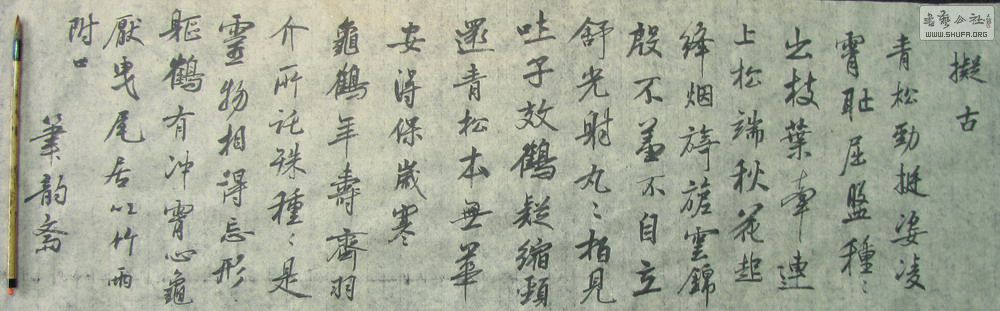 擬古
青松勁挺姿凌
霄耻屈盤種〻
出枝葉牽連
上松端秋花起
絳烟旖旎雲錦
殷不羞不自立
舒光射丸〻柏見
吐子效鶴疑縮頸
還青松本無華
安得保歲寒
龜鶴年壽齊羽
介所託殊種〻是
靈物相得忘形
軀鶴有冲霄心龜
厭曳尾居以竹兩
附口
筆韵斋
書藝公社
WWW.SHUFA.ORG